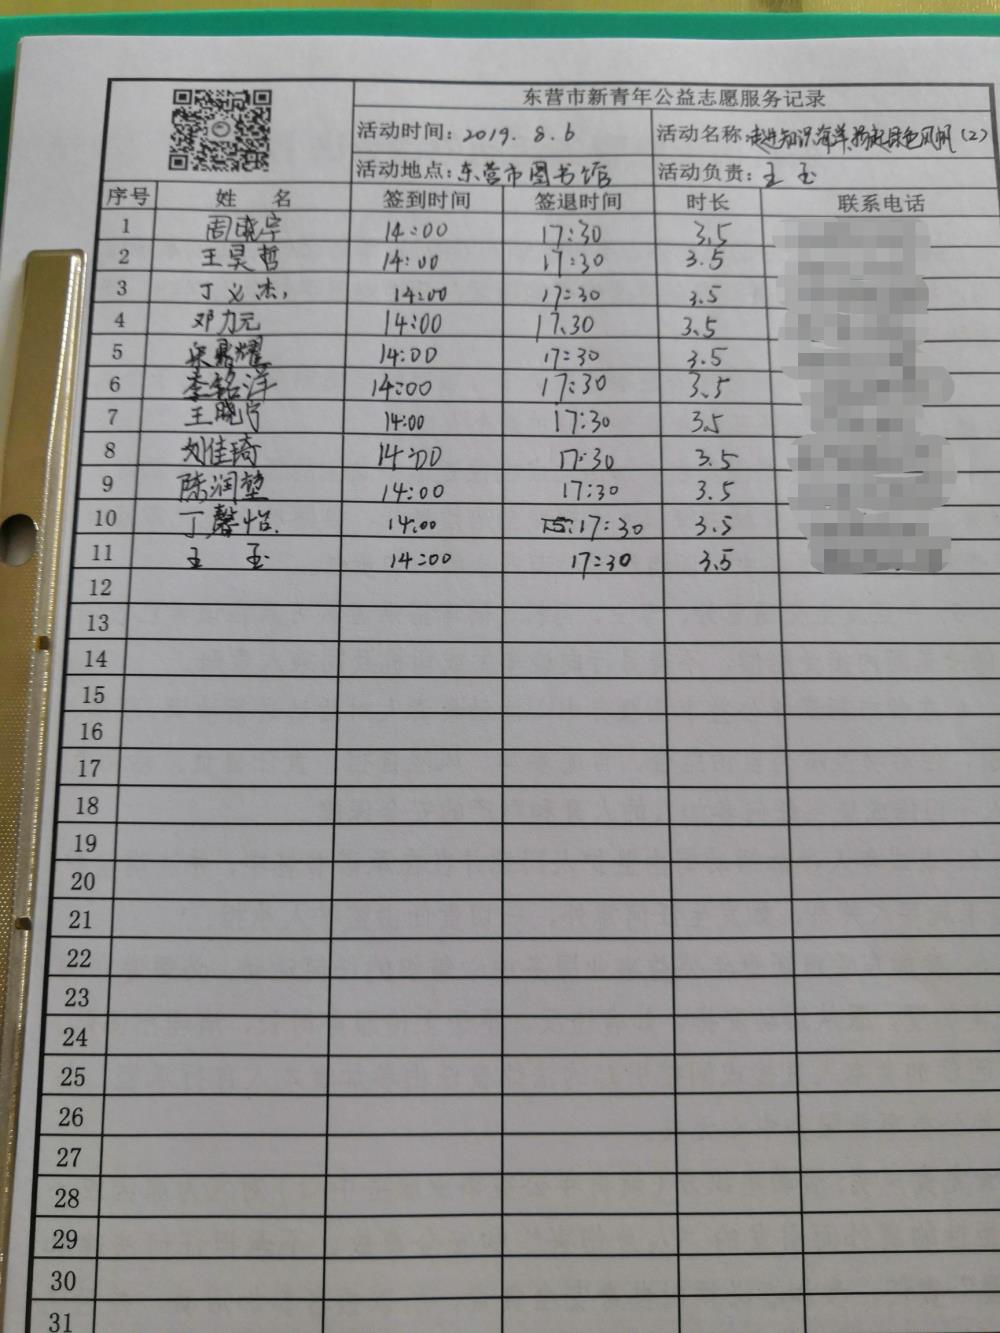 东营市新青年公益志愿服务记录
活动时间：2019.8.6 活动名称：走进知识海洋，扬起绿色风帆（2）
活动地点：东营市图书馆 活动负责：王玉
序号 姓 名 签到时间 签退时间 时长 联系电话
1 周晓宇 14:00 17:30 3.5
2 王昊哲 14:00 17:30 3.5
3 丁义杰 14:00 17:30 3.5
4 邓力元 14:00 17:30 3.5
5 鼎耀 14:00 17:30 3.5
6 李铭洋 14:00 17:30 3.5
7 王晓宁 14:00 17:30 3.5
8 刘佳琦 14:00 17:30 3.5
9 陈润堃 14:00 17:30 3.5
10 丁馨怡 14:00 17:30 3.5
11 王 玉 14:00 17:30 3.5
12
13
14
15
16
17
18
19
20
21
22
23
24
25
26
27
28
29
30
31